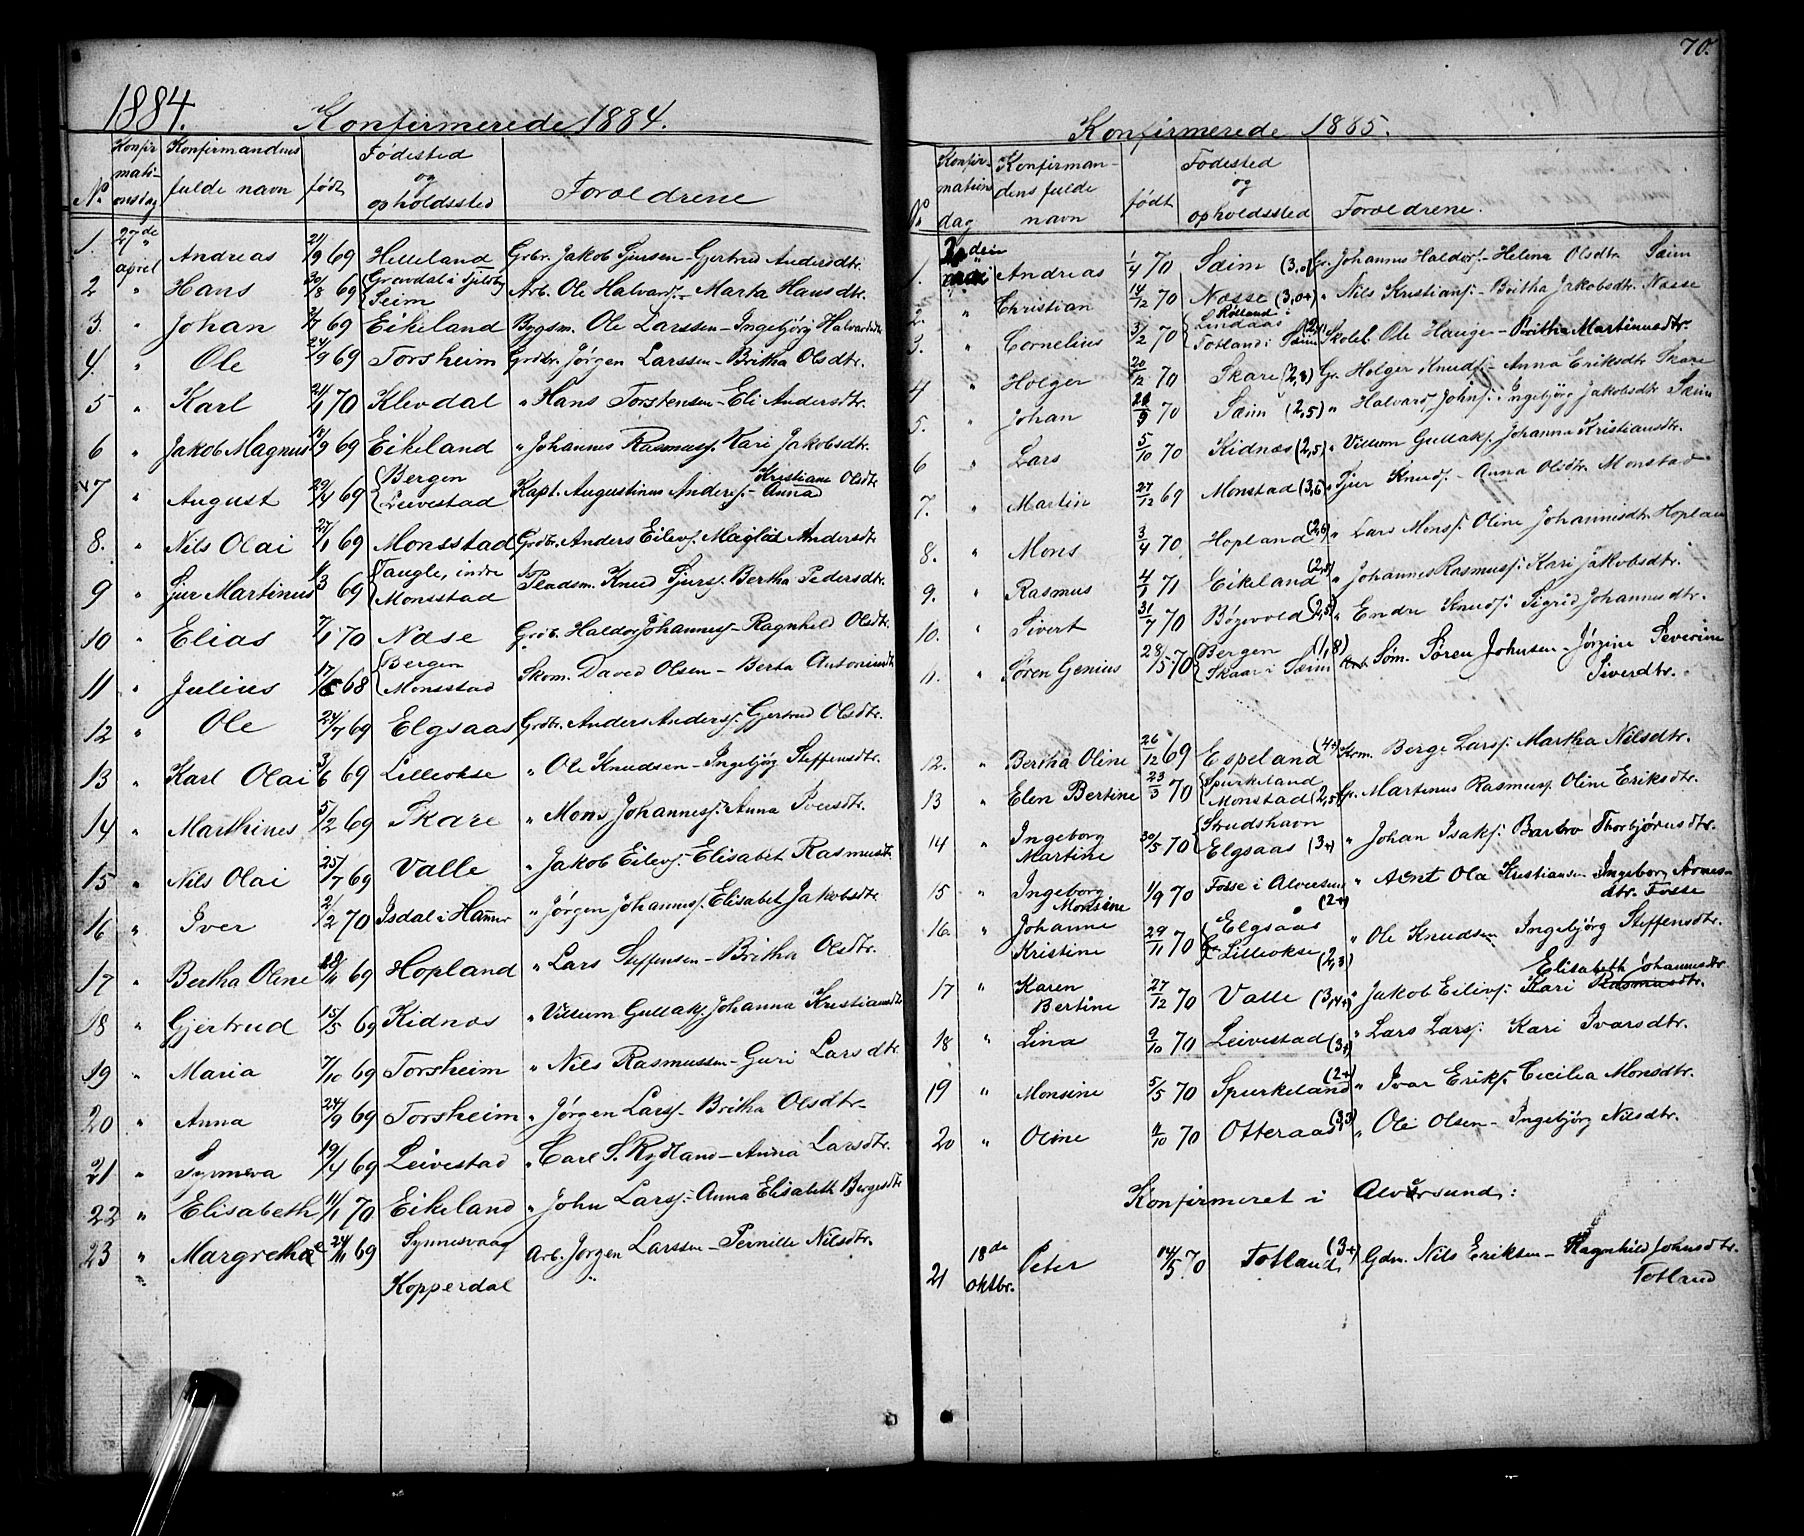 1884.
Konfirmerede 1884.
No. Konfirmationsdag Konfirmandens fulde navn født Fødested og opholdssted Forældrene
1. 27de april Andreas 21/9 69 Helleland Grbr. Jakob Sjursen - Gjertrud Andersdtr.
2 " Hans 30/8 69 Seim Arb. Ole Halvards. - Marta Hansdtr.
3. " Johan 69 Eikeland Bygsm. Ole Larssen - Ingebjörg Halvardsdtr
4. " Ole 24/9 69 Torsheim Grdbr. Jørgen Larssen - Britha Olsdtr.
5 " Karl 21/1 70 Klevdal " Hans Torstensen - Eli Andersdtr.
6 " Jakob Magnus 18/9 69 Eikeland " Johannes Rasmuss. Kari Jakobsdtr.
7 " August 29/4 69 Bergen Leivestad Kapt. Augustinus Anders. - Anna Kristiane Olsdtr
8. " Nils Olai 27/1 69 Monsstad Grdbr. Anders Eilevs. Andersdtr
9 " Sjur Martinus 69 Taugle, indre Monsstad Pladsm. Knud Sjurs. Bertha Pedersdtr.
10 " Elias 7/1 70 Næse Grdb. Haldor Johannes. - Ragnhild Olsdtr.
11 " Julius 68 Bergen Monsstad Skom. David Olsen - Berta Antoniusdtr
12 " Ole 24/7 69 Elgsaas Grdbr. Anders Anders. Gjertrud Olsdtr.
13 " Karl Olai 3/6 69 Lilleokse " Ole Knudsen - Ingebjög Steffensdtr.
14 " Marthines 5/2 69 Skare " Mons Johannes. Anna Iversdtr.
15 " Nils Olai 25/7 69 Valle " Jakob Eilevs. Elisabet Rasmusdtr.
16 " Iver 2/2 70 Isdal i Hammer " Jørgen Johannes. Elisabet Jakobsdtr
17 " Bertha Oline 69 Hopland " Lars Steffensen - Britha Olsdtr.
18 " Gjertrud 15/5 69 Kidnæs " Villum Gullaks. Johanna Kristiansdtr
19 " Maria 7/10 69 Torsheim " Nils Rasmussen - Guri Larsdtr.
20 " Anna 24/9 69 Torsheim " Jørgen Larss. Britha Olsdtr.
21 " Synneva 19/4 69 Leivestad " Carl S. Rydland - Anna Larsdtr.
22 " Elisabeth 11/1 70 Eikeland " John Larss. - Anna Elisabeth Bergesdtr
23 " Margretha 69 Synnesvaag Arb. Jørgen Larssen - Pernille Nilsdtr.
Kopperdal
70.
Konfirmerede 1885.
No. Konfirmations dag Konfirmandens fulde navn født Fødested og opholdssted Forældrene.
1. Andreas 1/4 70 Sæim (3,0) Gr. Johannes Haldors. - Helena Olsdtr Sæim
2. " Christian 14/12 70 Næsse (3,0+) " Nils Kristians. - Britha Jakobsdtr. Næsse
3. " Cornelius 3/2 70 Lindaas Totland i Sæim Skolel. Ole Hauge - Britha Martinusdtr.
4 " Holger 20/12 70 Skare (2,3) Gr. Holger Knuds. - Anna Eriksdtr Skare
5. " Johan 70 Sæim (2,5) " Halvard Johns. Ingebjörg Jakobsdtr Sæim
6 " Lars 5/10 70 Kidnæs (2,5) " Villum Gullaks. Johanna Kristiansdtr.
7. " Martin 27/12 69 Monstad (3,6) " Sjur Knuds. - Anna Olsdtr Monstad
8. " Mons 3/4 70 Hopland " Lars Mons. Oline Johannesdtr. Hopland
9. " Rasmus 4/1 71 Eikeland " Johannes Rasmuss. Kari Jakobsdtr.
10. " Sivert 31/7 70 Bøgevold (2,5) " Endre Knuds. Sigrid Johannesdtr.
11. " Søren Genius 28/5 70 Bergen (1,8) Skaar i Sæim Søm. Søren Johnsen - Jørgine Severine Siverdtr.
12. " Bertha Oline 26/12 69 Espeland Krm. Berge Larss. Martha Nilsdtr.
13 " Elen Bertine 23/3 70 Spurkeland Monstad (2,5) Gr. Martinus Rasmuss. Oline Eriksdtr.
14 " Ingeborg Martine 30/5 70 Strudshavn Elgsaas (3+) " Johan Isaks. Barbro Thorbjørnsdtr.
15 " Ingeborg Monsine 1/9 70 Fosse i Alversund (2+) " Arnt Ola Kristiansen Ingeborg Arnesdtr. Fosse
16. " Johanne Kristine 29/11 70 Elgsaas Lilleokse (2,3) " Ole Knudsen Ingebjörg Steffensdtr.
17 " Karen Bertine 27/12 70 Valle (3,4+) " Jakob Eilevs. Kari Rasmusdtr. Elisabeth Johannesdtr.
18 " Lina 9/10 70 Leivestad (3+) " Lars Larss. Kari Ivarsdtr.
19 " Monsine 5/5 70 Spurkeland (2+) " Ivar Eriks. Cecilia Monsdtr.
20 " Oline 11/10 70 Otteraas (3,3) " Ole Olsen - Ingebjörg Nilsdtr.
Konfirmeret i Alversund:
21 18de oktbr. Peter 14/5 70 Totland (3+) Gdm. Nils Eriksen - Ragnhild Johnsdtr. Totland